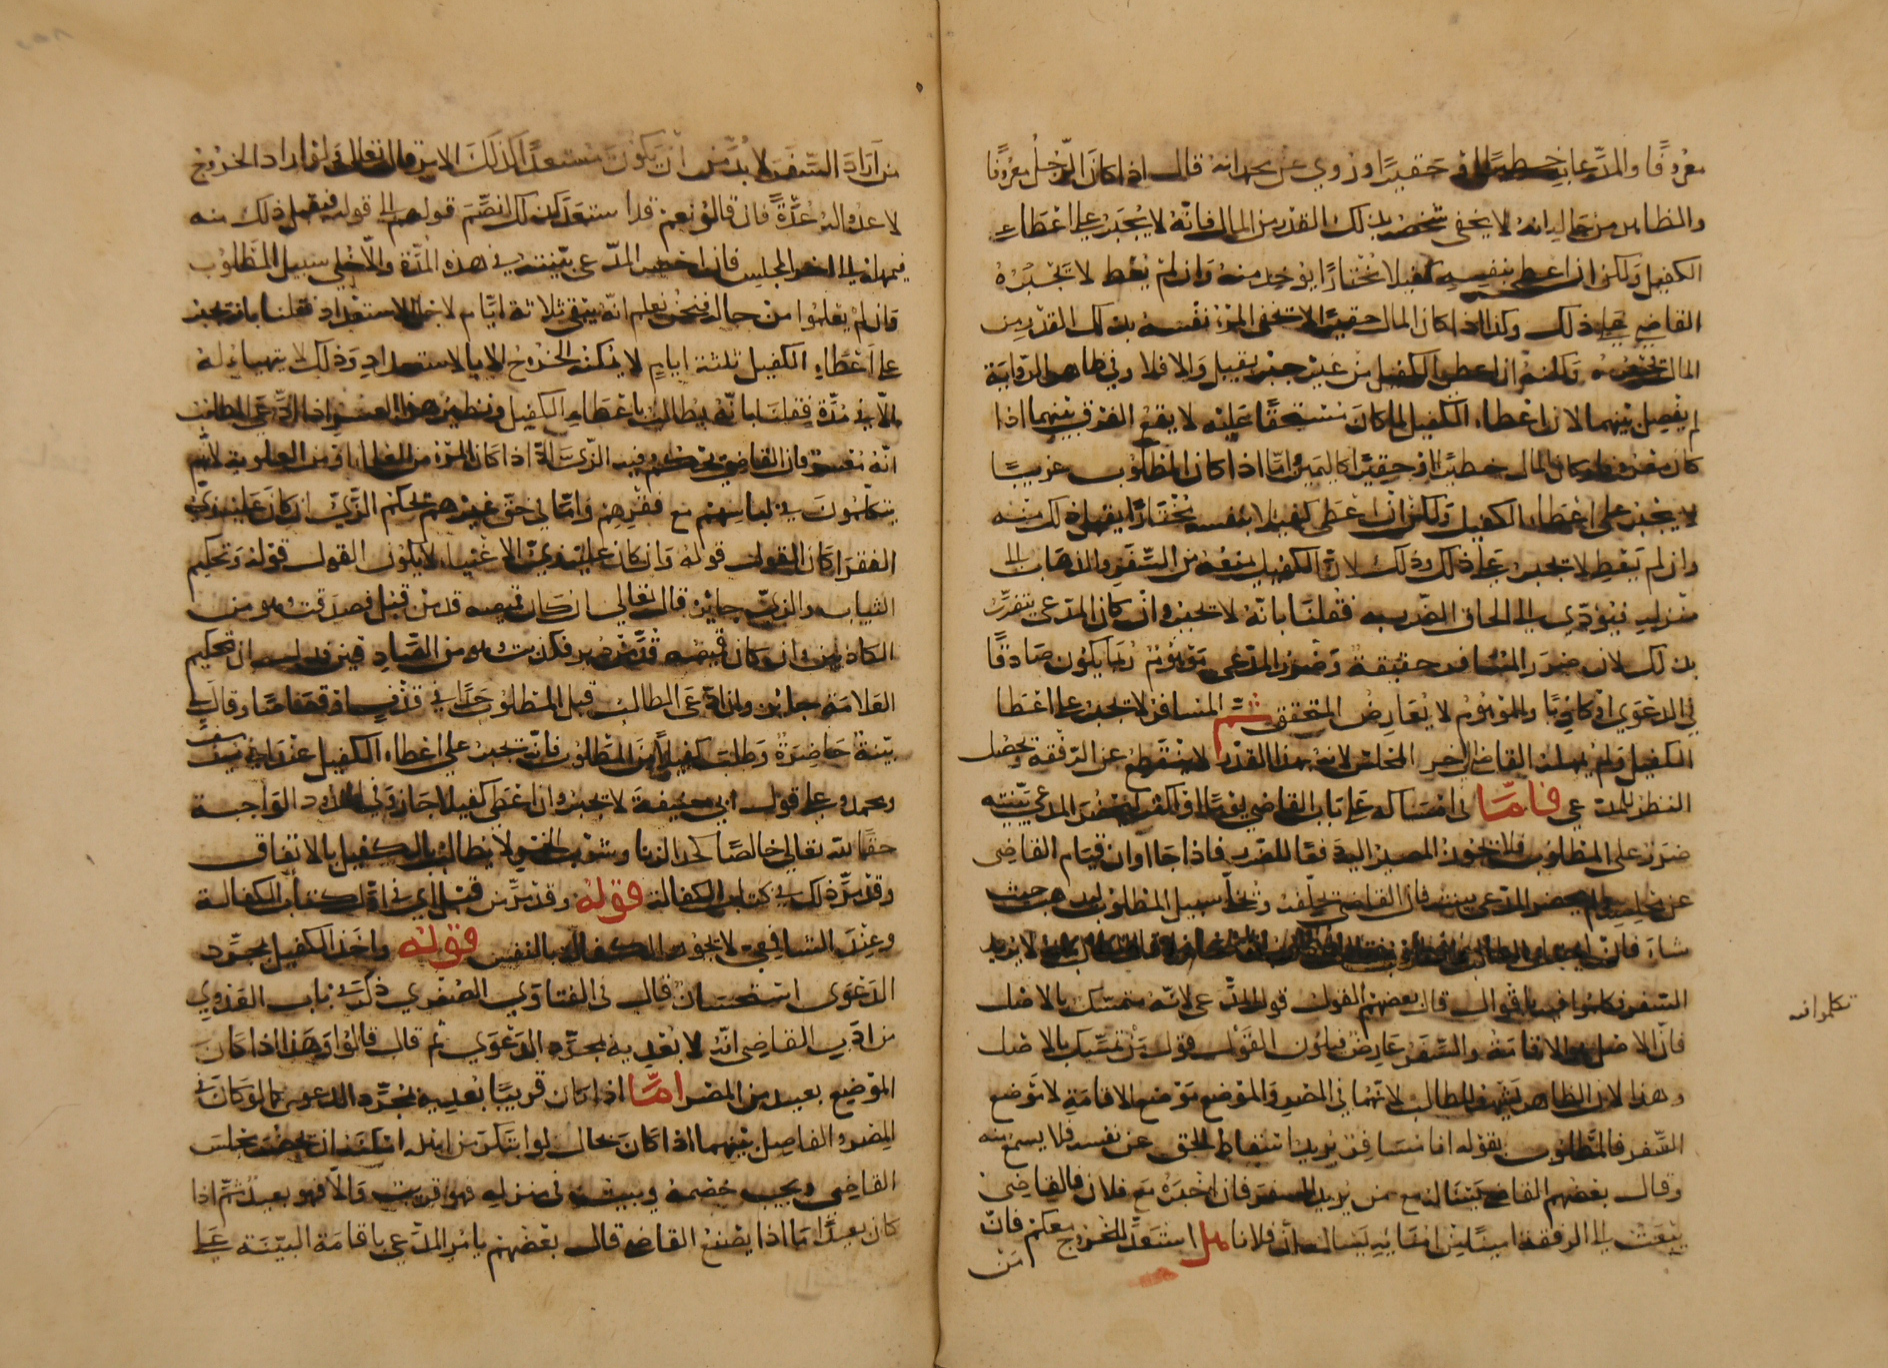 معروفا والمدعا به خطيرا او حقيرا وروي عن محمد انه قال اذا كان الرجل معروفا
والظاهر من حاله انه لا يخفي شخصه بذلك القدر من المال فانه لا يجبر على اعطاء
الكفيل ولكن ان اعطى بنفسه كفيلا مختارا يوخذ منه وان لم يعط لا يجبره
القاضي على ذلك وكذا اذا كان المال حقيرا لا يخفي المرء نفسه بذلك القدر من
المال ولكنه ان اعطى الكفيل من غير جبر يقبل والا فلا وفي ظاهر الرواية
لم يفصل بينهما لان اعطاء الكفيل لما كان مستحقا عليه لا يقع الفرق بينهما اذا
كان معروفا وكان المال خطيرا او حقيرا كاليمين واما اذا كان المطلوب غريبا
لا يجبر على اعطاء الكفيل ولكن ان اعطى كفيلا بنفسه مختارا يقبل ذلك منه
وان لم يعط لا يجبر على ذلك وذلك لان الكفيل يمنعه من السفر والذهاب الى
منزله فيؤدي الى الحاق الضرر به فقلنا بانه لا يجبر وان كان المدعي يتضرر
بذلك لان ضرر المسافر حقيقة وضرر المدعي موهوم ربما يكون صادقا
في الدعوى او كاذبا والموهوم لا يعارض المتحقق ثم المسافر لا يجبر على اعطا
الكفيل ولم يمهله القاضي الى اخر المجلس لانه بهذا القدر لا ينقطع عن الرفقة ويحصل
النظر للمدعي فاما في امساكه على باب القاضي يوما او اكثر ليحضر المدعي بينته
ضرر على المطلوب فلا يجوز المصير اليه دفعا للضرر فاذا جا اوان قيام القاضي
عن مجلسه ولم يحضر المدعي بينته فان القاضي يحلفه ويخلي سبيل المطلوب ليذهب حيث
شاء فان لا يريد
السفر تكلموا فيه باقوال قال بعضهم القول قول المدعي لانه متمسك بالاصل
فان الاصل هو الاقامة والسفر عارض فيكون القول قول من تمسك بالاصل
وهذا لان الظاهر يشهد للطالب لانهما في المصر والموضع موضع الاقامة لا موضع
السفر فالمطلوب بقوله انا مسافر يريد اسقاط الحق عن نفسه فلا يسمع منه
وقال بعضهم القاضي يساله مع من يريد السفر فان اخبره مع فلان فالقاضي
يبعث الى الرفقة امينا من امنائه يسال ان فلانا هل استعد للخروج معكم فان
من
تكلموا فيه
من اراد السفر لا بد من ان يكون مستعدا لذلك الا يرى قال تعالى ولو ارادوا الخروج
لاعدوا له عدة فان قالوا نعم قد استعد لذلك انضم قولهم الى قوله فيقبل ذلك منه
فيمهله الى اخر المجلس فان احضر المدعي بينته في هذه المدة والا خلي سبيل المطلوب
فان لم يعلموا من حاله فنحن نعلم انه يبقى ثلاثة ايام لاجل الاستعداد فقلنا بانه يجبر
على اعطاء الكفيل ثلثة ايام لا يمكنه الخروج الا بالاستعداد وذلك لا يتهياء له
الا في مدة فقلنا بانه يطالب باعطاء الكفيل ونظير هذا المعسر اذا ادعى المطلوب
انه معسر فان القاضي يحكم فيه الزي سالة اذا كان المرء من العلماء او من العلوية لانهم
يتكلفون في لباسهم مع فقرهم واما في حق غيرهم يحكم الزي ان كان عليه زي
الفقرا كان القول قوله وان كان عليه زي الاغنياء لا يكون القول قوله وتحكيم
الثياب والزي جائز قال تعالى ان كان قميصه قد من قبل فصدقت وهو من
الكاذبين وان كان قميصه قد من دبر فكذبت وهو من الصادقين دل ان تحكيم
العلامة جائز وان ادعى الطالب قبل المطلوب حدا في قذف او قصاصا وقال لي
بينة حاضرة وطلب كفيلا من المطلوب فانه يجبر على اعطاء الكفيل عند ابي يوسف
ومحمد وعلى قول ابي حنيفة لا يجبر وان اعطى كفيلا جاز وفي الحدود الواجبة
حقا لله تعالى خالصا كحد الزنا وشرب الخمر لا يطالب بالكفيل بالاتفاق
وقد مر ذلك في كتاب الكفالة قوله وقد مر من قبل اي في اول كتاب الكفالة
وعند الشافعي لا يجوز الكفالة بالنفس قوله واخذ الكفيل بمجرد
الدعوى استحسان قال في الفتاوي الصغرى ذكر في باب العدوي
من ادب القاضي انه لا يعديه بمجرد الدعوي ثم قال قالوا وهذا اذا كان
الموضع بعيد من المصر اما اذا كان قريبا يعديه بمجرد الدعوى كما لو كان في
المصر والفاصل بينهما اذا كان بحال لو ابتكر من اهله امكنه ان يحضر مجلس
القاضي ويجيب خصمه ويبيت في منزله فهو قريب والا فهو بعيد ثم اذا
كان بعيدا ما اذا يصنع القاضي قال بعضهم يامر المدعي باقامة البينة على